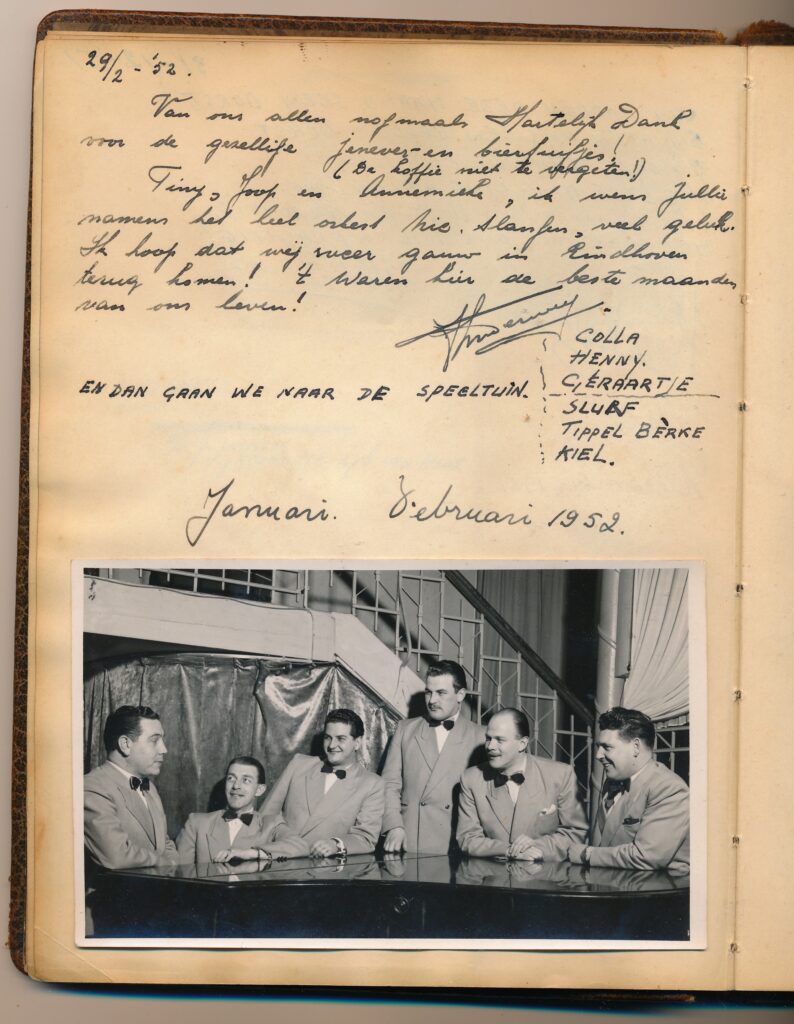 29/2 - '52.
Van ons allen nogmaals Hartelijk Dank
voor de gezellige jenever- en bierfuifjes!
(De koffie niet te vergeten!)
Tiny, Joop en Annemieke, ik wens jullie
namens het heel orkest Nic. Slangen, veel geluk.
Ik hoop dat wij weer gauw in Eindhoven
terug komen! 't Waren hier de beste maanden
van ons leven!
COLLA
HENNY.
GERAARTJE
EN DAN GAAN WE NAAR DE SPEELTUIN.
SLURF
TIPPEL BÈRKE
KIEL.
Januari. Februari 1952.